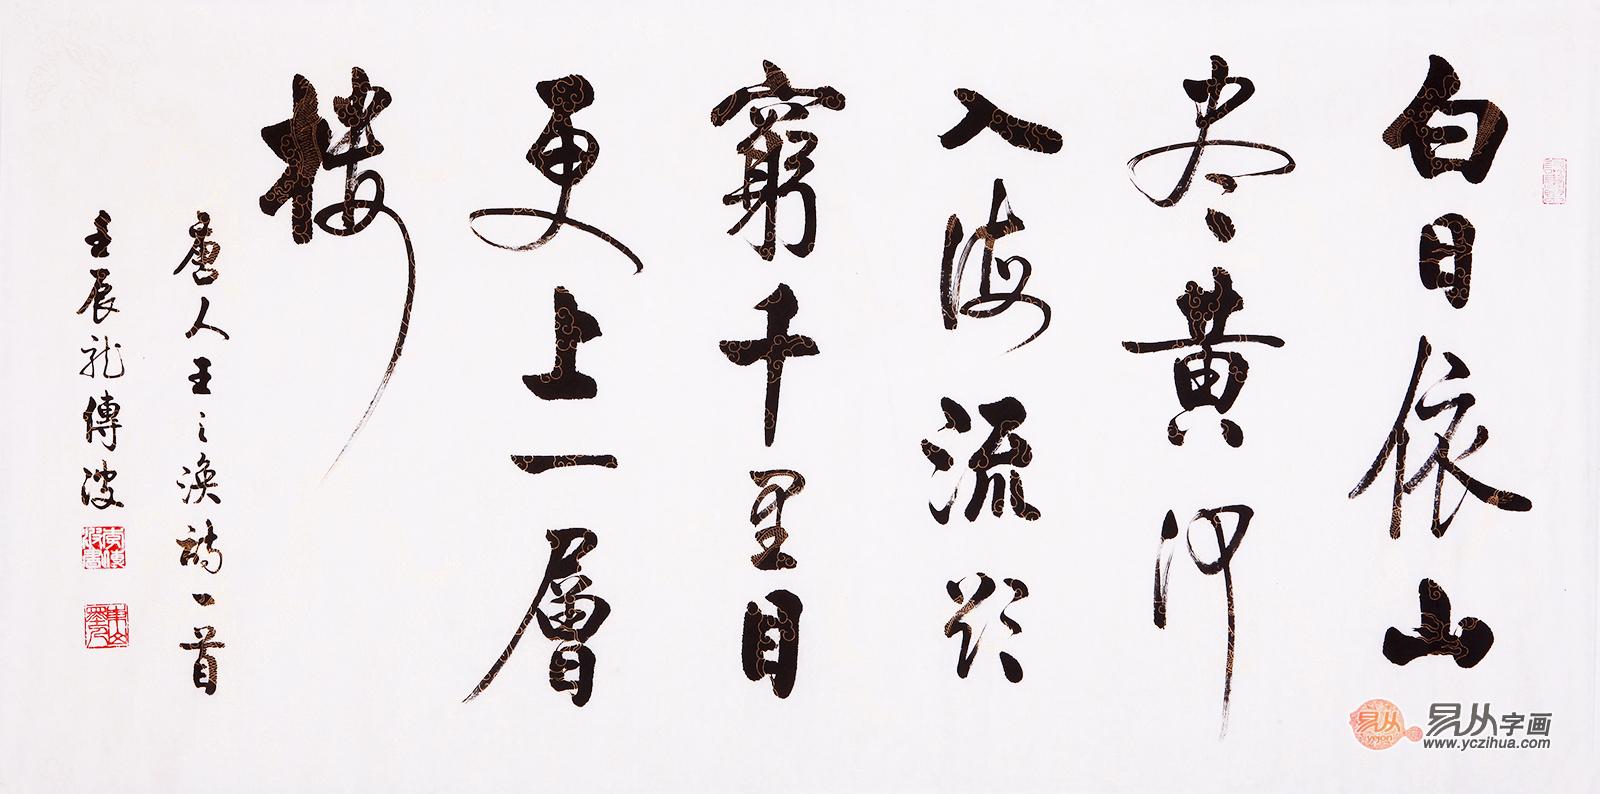 白日依山
尽黄河
入海流欲
窮千里目
更上一層
樓
唐人王之渙詩一首
壬辰龍傳波
易从
易从字画
www.yczihua.com